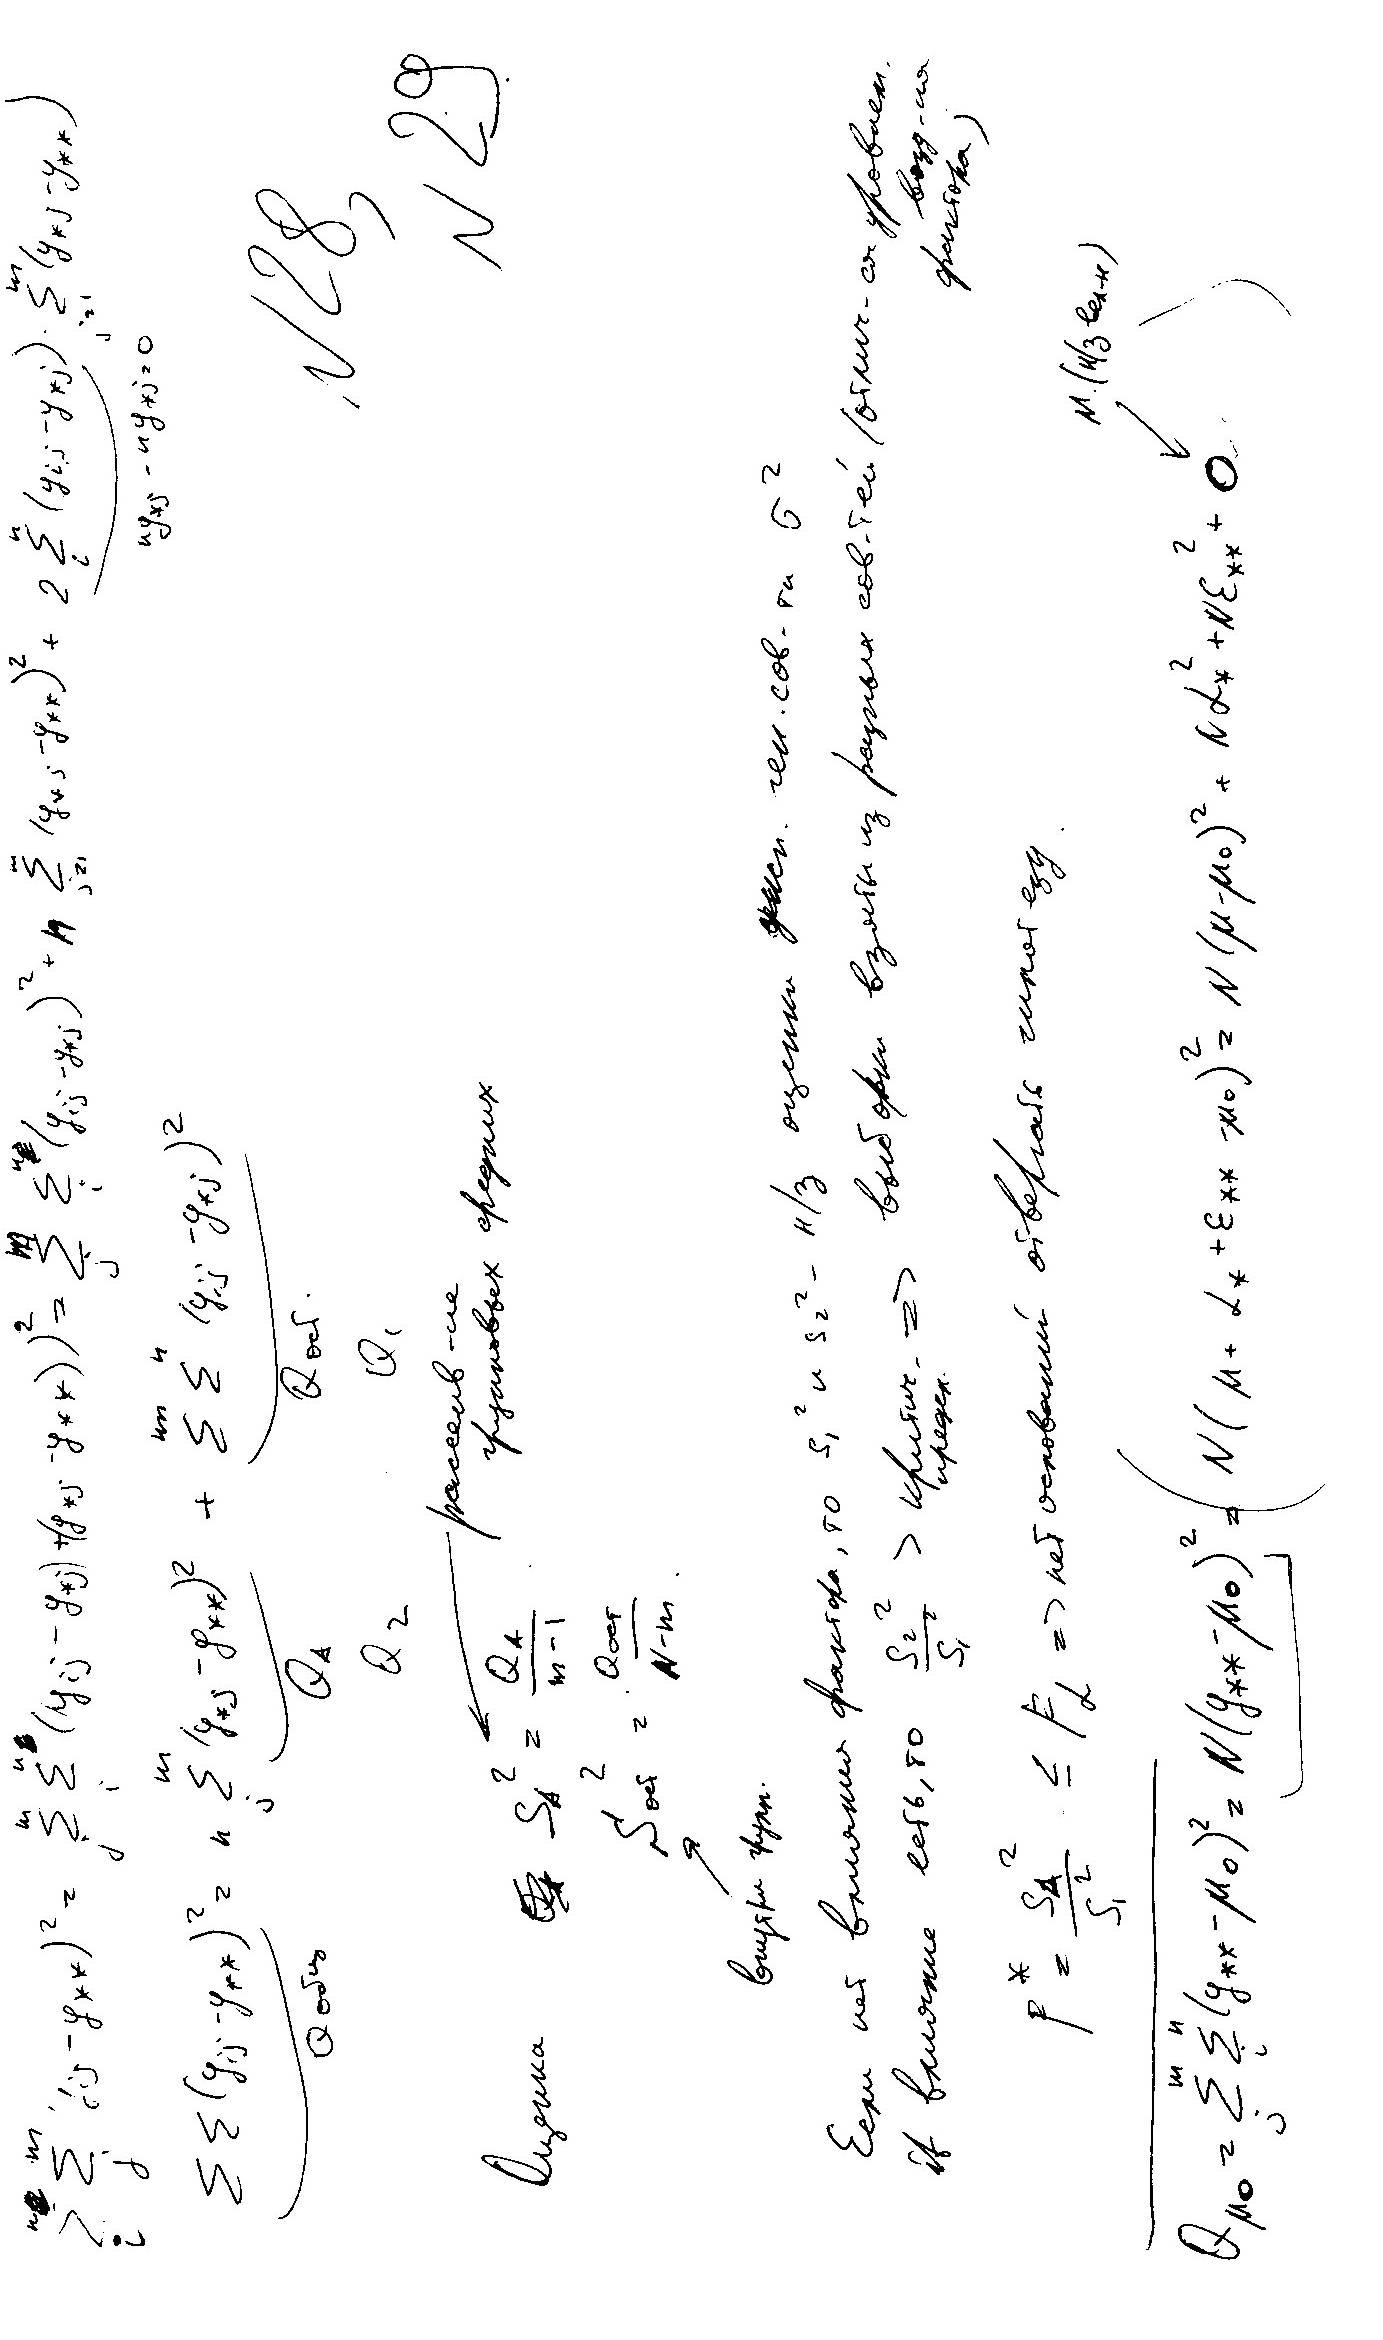 ∑_i^n ∑_j^m (y_ij - y_**)² = ∑_j^m ∑_i^n ((y_ij - y_*j) + (y_*j - y_**))² = ∑_j^m ∑_i^n (y_ij - y_*j)² + n ∑_{j=1}^m (y_*j - y_**)² + 2 ∑_i^n (y_ij - y_*j) · ∑_{j=1}^m (y_*j - y_**)
ny_*j - ny_*j = 0
∑∑(y_ij - y_**)² = n ∑_j^m (y_*j - y_**)² + ∑^m ∑^n (y_ij - y_*j)²
Q общ Q_A Q ост.
Q₂ Q₁
N28,
N 29
рассеив-ие
групповых средних
Оценка S_A² = Q_A / (m-1)
S²ост = Qост / (N-m).
внутри групп.
Если нет влияния фактора, то S₁² и S₂² - н/з оценки дисп. ген. сов-ти σ²
if влияние есть, то S₂²/S₁² > критич. предел. => выборки взяты из разных сов-тей (отлич-ся уровнем возд-ия фактора)
F* = S_A²/S₁² ≤ F_α => нет оснований отвергать гипотезу.
М. (н/з вел-н)
Q_μ₀ = ∑_j^m ∑_i^n (y_** - μ₀)² = N(y_** - μ₀)² = N(μ + α_* + ε_** - μ₀)² = N(μ - μ₀)² + Nα_*² + Nε_**² + 0